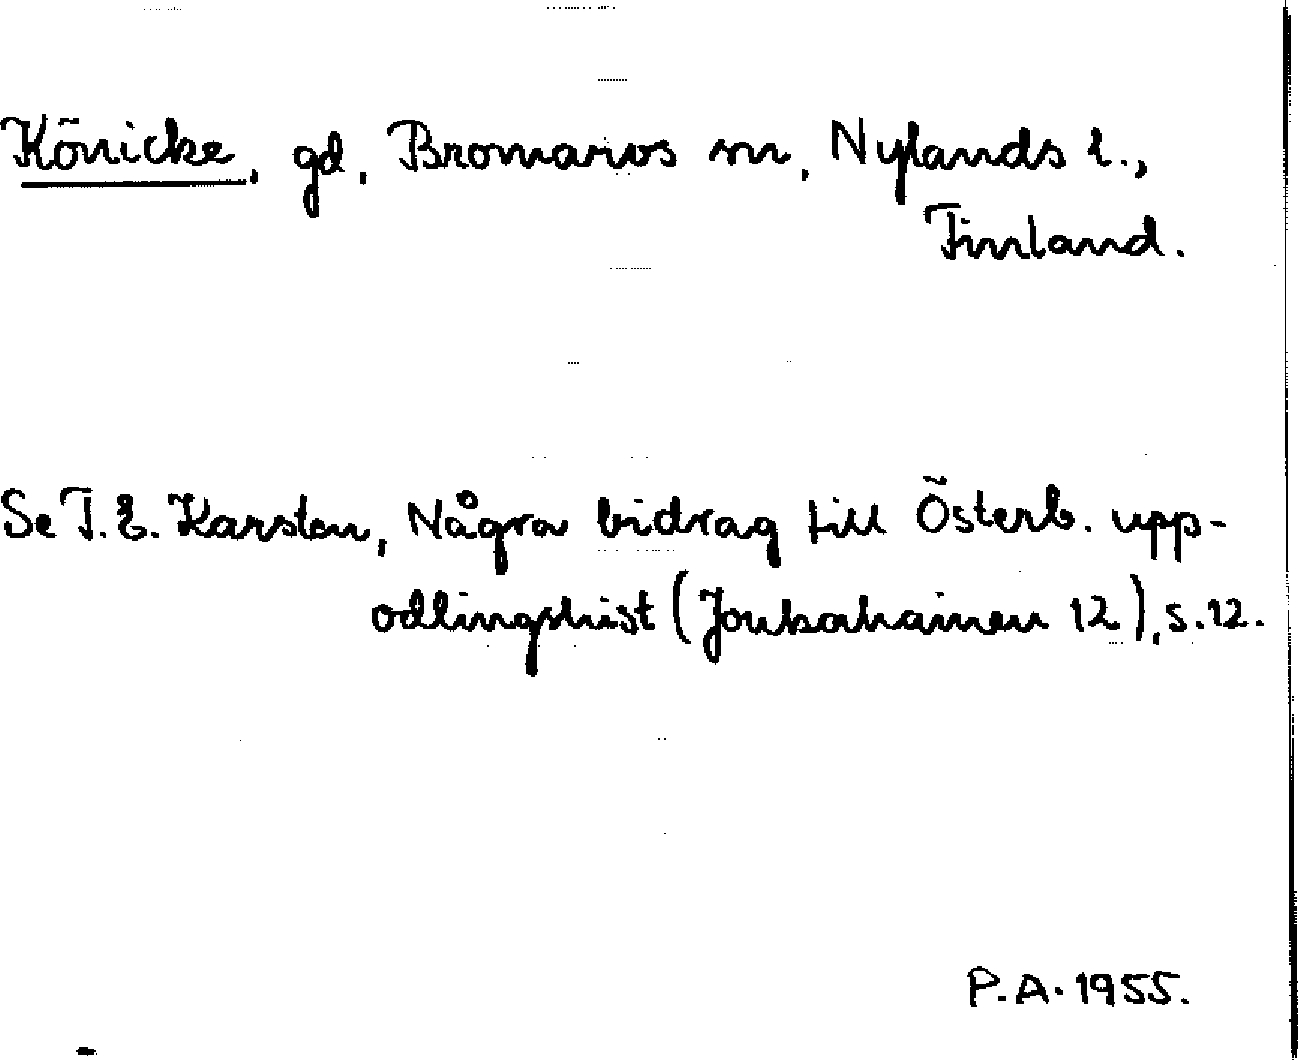 Könicke, gd, Bromarvs sn, Nylands l.,
Finland.
Se T. E. Karsten, Några bidrag till Österb. upp-
odlingshist (Joukahainen 12), s. 12.
P.A. 1955.